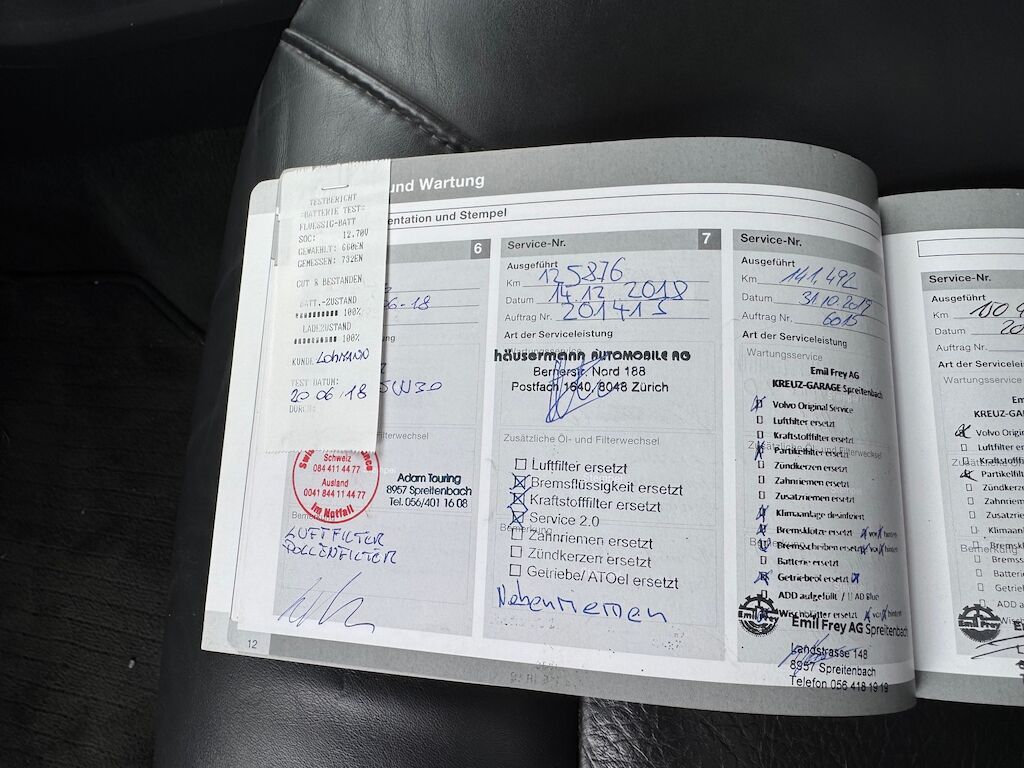 und Wartung
entation und Stempel
TESTBERICHT
=BATTERIE TEST=
FLUESSIG-BATT
SOC: 12.70V
GEWAEHLT: 660EN
GEMESSEN: 732EN
GUT & BESTANDEN
BATT.-ZUSTAND
100%
LADEZUSTAND
100%
KUNDE Lohmann
TEST DATUM:
20 06.18
DURCH:
6
6-18
5W30
Filterwechsel
Schweiz
084 411 44 77
Ausland
0041 844 11 44 77
Im Notfall
Adam Touring
8957 Spreitenbach
Tel. 056/401 16 08
LUFTFILTER
POLLENFILTER
12
Service-Nr. 7
Ausgeführt
Km 125876
Datum 14.12 2018
Auftrag Nr. 201415
Art der Serviceleistung
häusermann AUTOMOBILE AG
Bernerstr. Nord 188
Postfach 1640, 8048 Zürich
Zusätzliche Öl- und Filterwechsel
Luftfilter ersetzt
Bremsflüssigkeit ersetzt
Kraftstofffilter ersetzt
Service 2.0
Bemerkung
Zahnriemen ersetzt
Zündkerzen ersetzt
Getriebe/ ATOel ersetzt
Nebenriemen
Service-Nr.
Ausgeführt
Km 141.492
Datum 31.10.2019
Auftrag Nr. 6015
Art der Serviceleistung
Wartungsservice
Emil Frey AG
KREUZ-GARAGE Spreitenbach
Volvo Original Service
Luftfilter ersetzt
Kraftstofffilter ersetzt
Partikelfilter ersetzt
Zündkerzen ersetzt
Zahnriemen ersetzt
Zusatzriemen ersetzt
Klimaanlage desinfiziert
Bremsklötze ersetzt vo hinten
Bremsscheiben ersetzt vo hinten
Batterie ersetzt
Getriebeöl ersetzt
ADD aufgefüllt / AD Blue
Wischblätter ersetzt vo hinten
Emil Frey
Emil Frey AG Spreitenbach
Landstrasse 148
8957 Spreitenbach
Telefon 056 418 19 19
Service-Nr.
Ausgeführt
Km 150
Datum 20
Auftrag Nr.
Art der Servicelei
Wartungsservice
Em
KREUZ-GA
Volvo Origin
Luftfilter ers
Kraftstofffil
Partikelfilter
Zündkerze
Zahnriemen
Zusatzriem
Klimaanlage
Bremsk
Bremss
Batterie
Getriebe
ADD a
Emil Frey